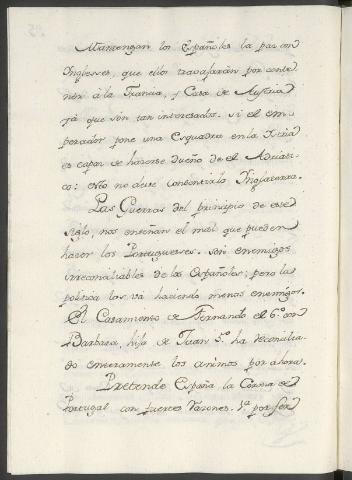 Mantengan los Españoles la paz con
Inglesses, que ellos travajaràn por conte
ner à la Francia, y Casa de Austria
yà que son tan interesados. si el em
perador pone una Esquadra en la Istria
es capaz de hacerse dueño de el Adriati
co: esto no deve consentirlo Inglaterra.
Las Guerras del principio de este
siglo, nos enseñan el mal que pueden
hacer los Portuguesses. son enemigos
irreconciliables de los Españoles; pero la
politica los va haciendo menos enemigos.
El Casamiento de Fernando el 6.º con
Barbara, hija de Juan 5.º ha reconcilia
do enteramente los animos por ahora.
Pretende España la Corona de
Portugal con fuertes razones. 1.ª por ser